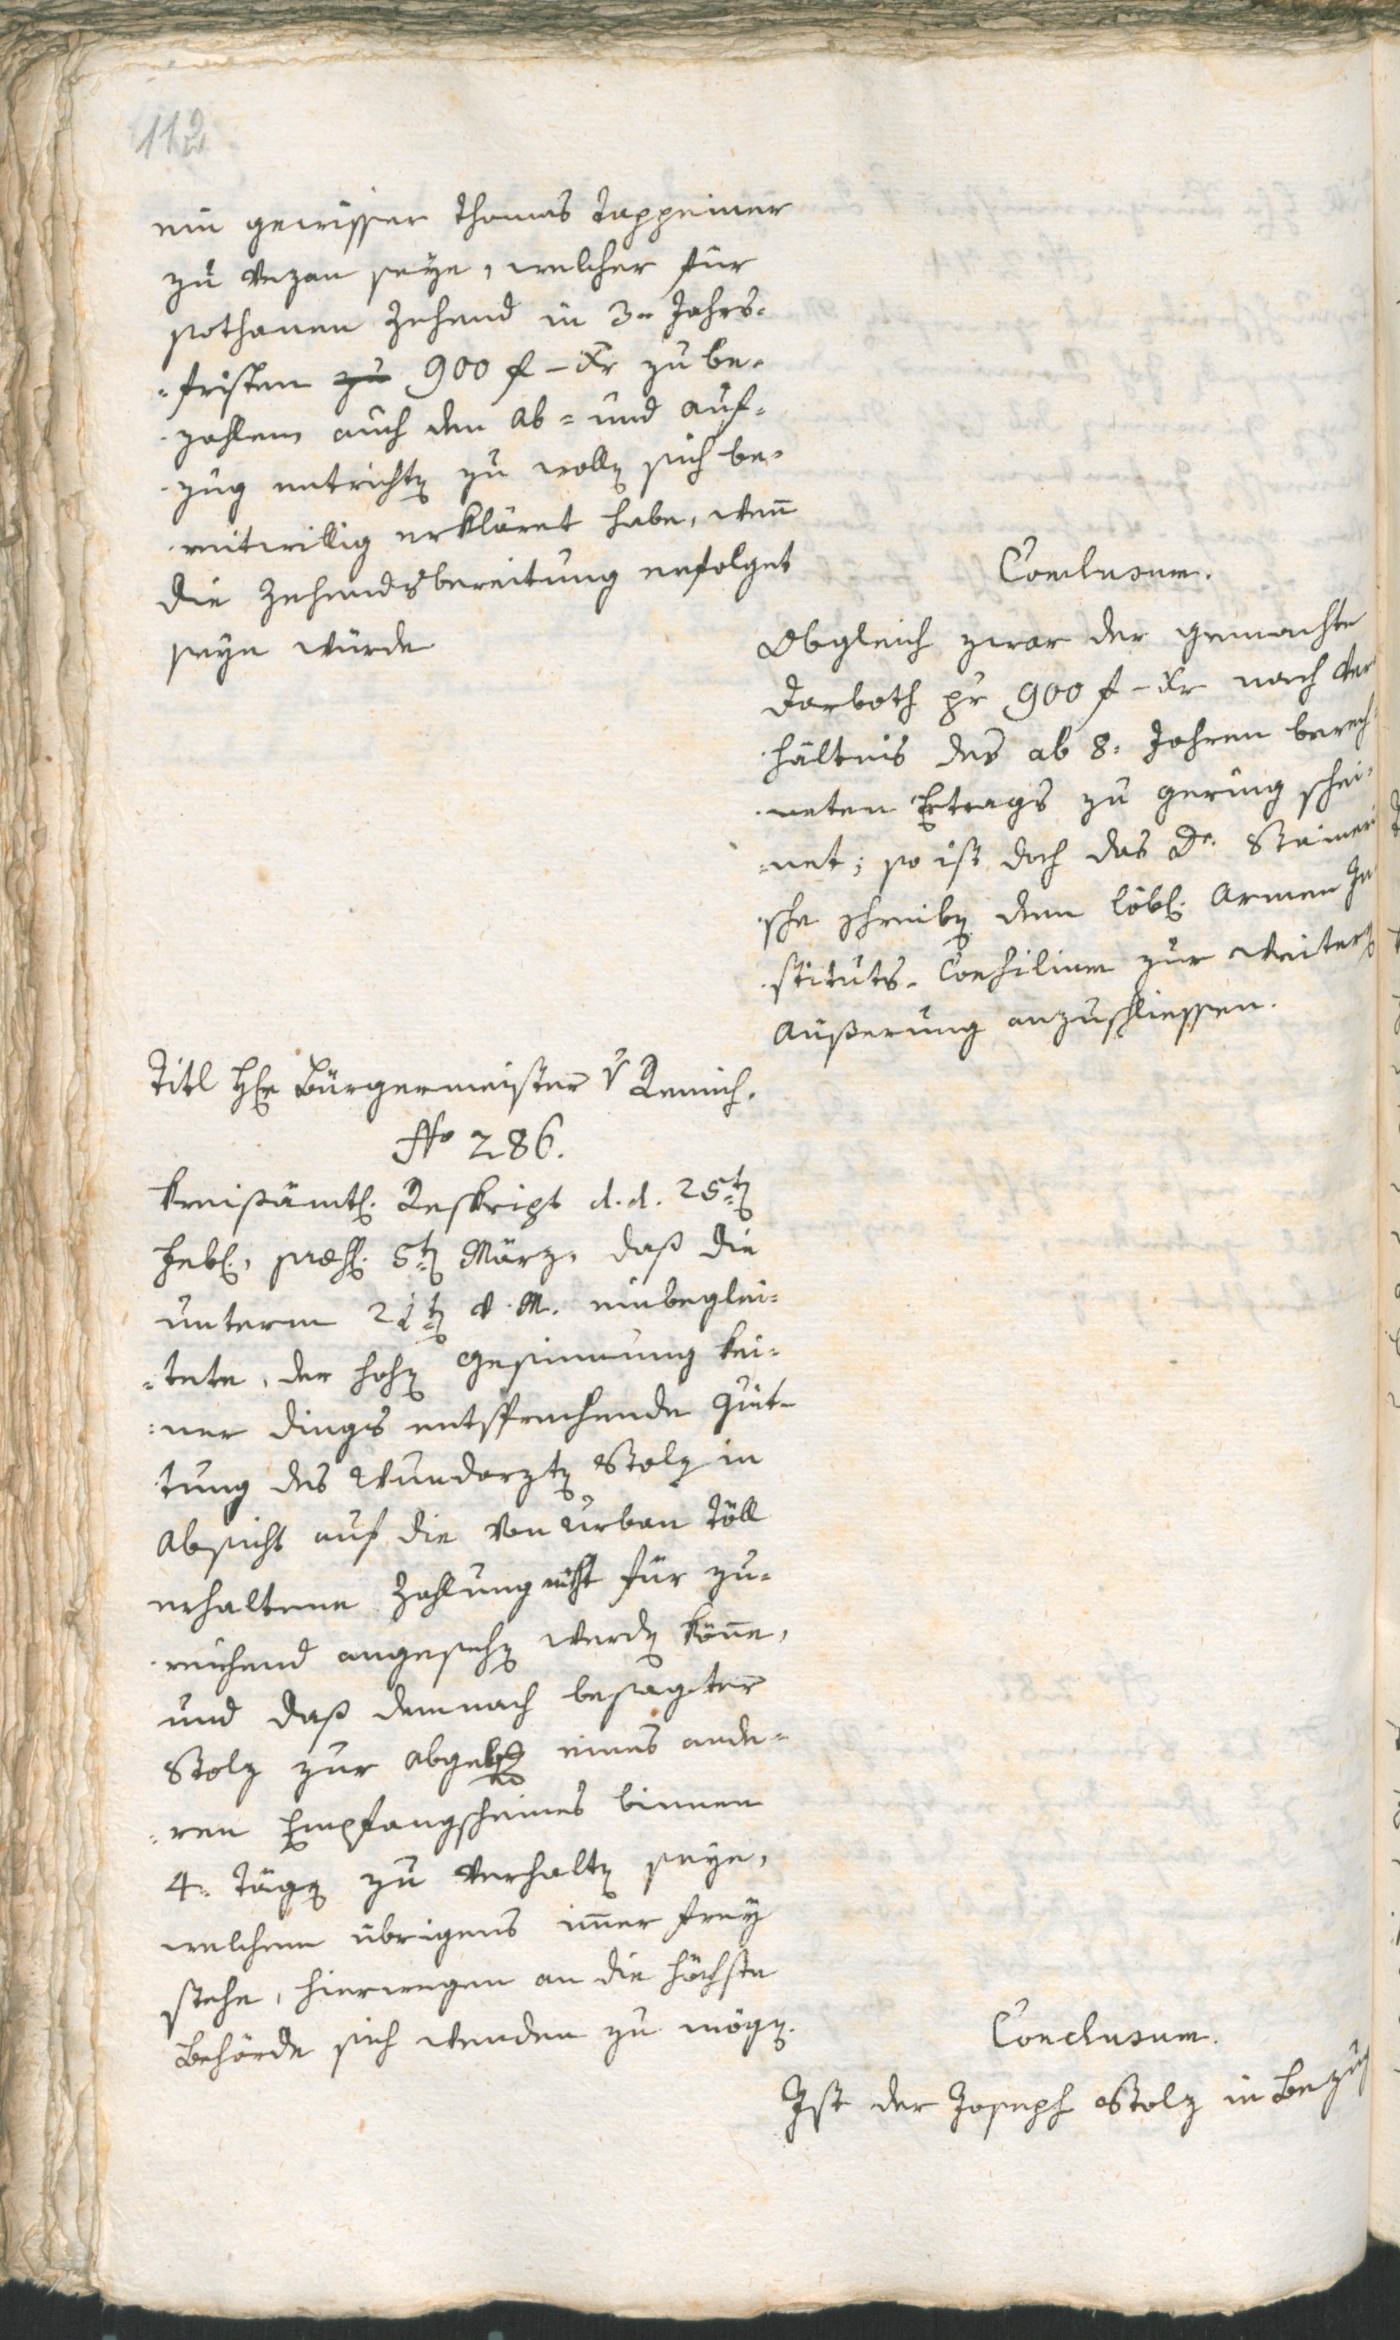 112
ein gewisser Thomas Tappeiner
zu Vezan seye, welcher für
sothanen Zehend in 3 Jahrs-
-fristen zu 900 f - xr zu be-
-zahlen, auch den Ab- und Auf-
-zug entrichten zu wollen sich be-
-reitwillig erkläret habe, wenn
die Zehendsbereitung erfolget
seyn würde
Conclusum.
Obgleich zwar der gemachte
Darboth pr 900 f - xr nach Ver-
-hältnis des ab 8. Jahren berech-
-neten Ertrags zu gering schei-
-net; so ist doch das Dr. Staineri-
-sche Schreiben dem löbl. Armen In-
-stituts-Consilium zur weitern
Äußerung anzuschliessen.
Titl Hr Bürgermeister v Remich.
No 286.
Kreisämtl. Reskript d. d. 25ten
Febl., præs. 5ten März, daß die
unterm 21ten v. M. einbeglei-
-tete, der hohen Gesinnung kei-
-ner dings entsprechende Quit-
-tung des Wundarzten Stolz in
Absicht auf die von Urban Töll
erhaltene Zahlung nicht für zu-
-reichend angesehen werden könne,
und daß demnach besagter
Stolz zur Abgebung eines ande-
-ren Empfangscheines binnen
4. Tägen zu verhalten seye,
welchem übrigens immer frey
stehe, hierwegen an die höchste
Behörde sich wenden zu mögen.
Conclusum.
Ist der Joseph Stolz in Bezug